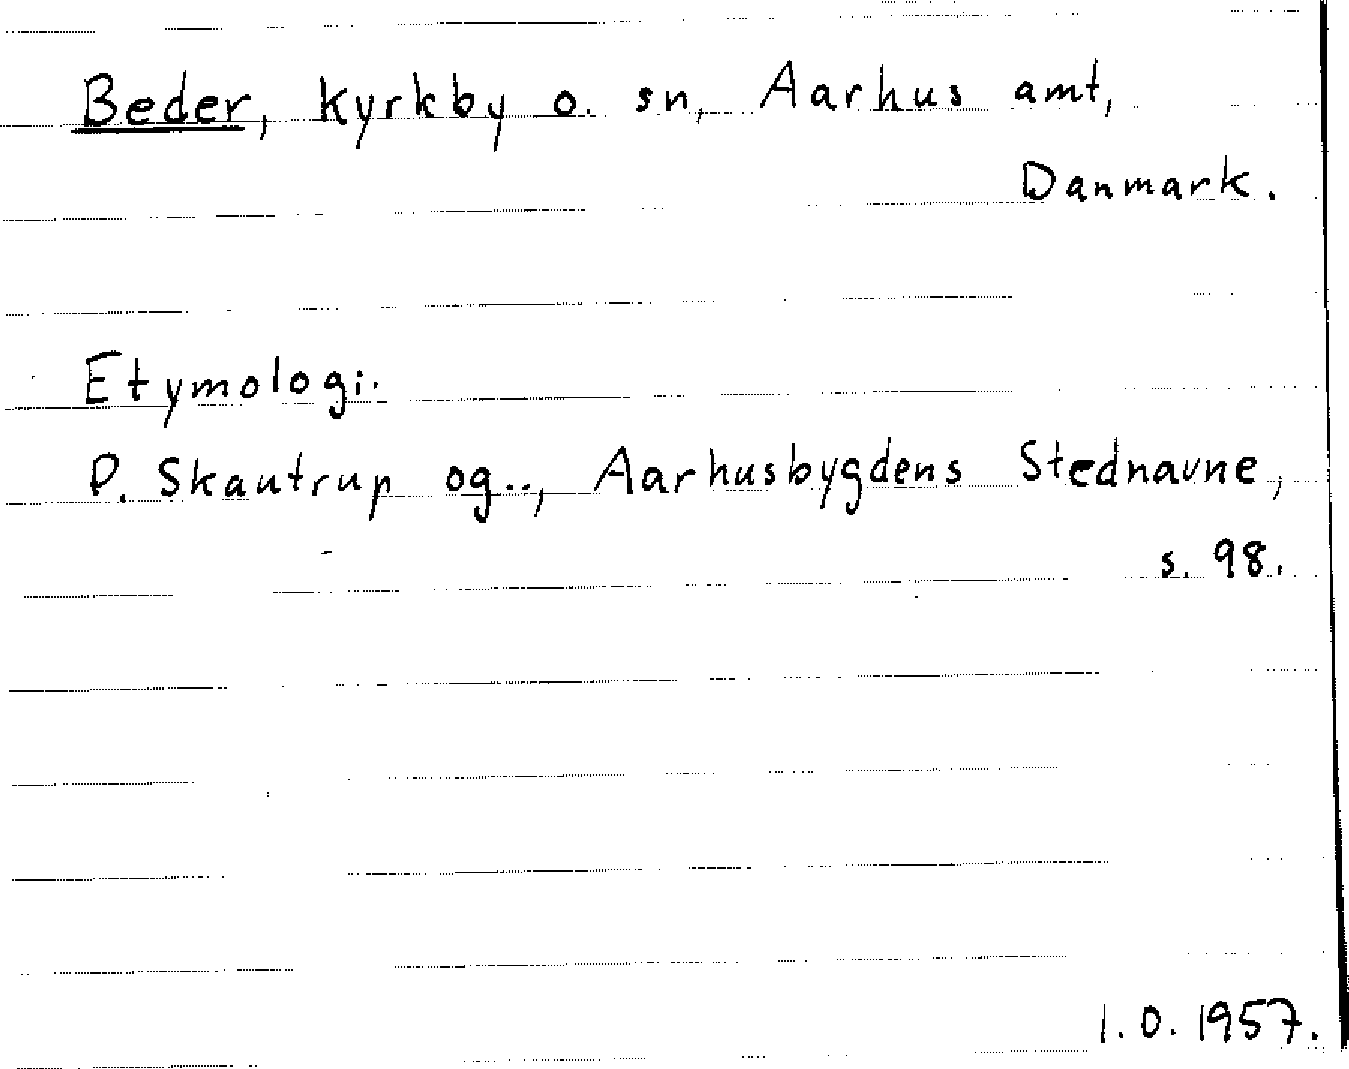 Beder, kyrkby o. sn, Aarhus amt,
Danmark.
Etymologi.
P. Skautrup og.., Aarhusbygdens Stednavne,
s. 98.
1.0. 1957.